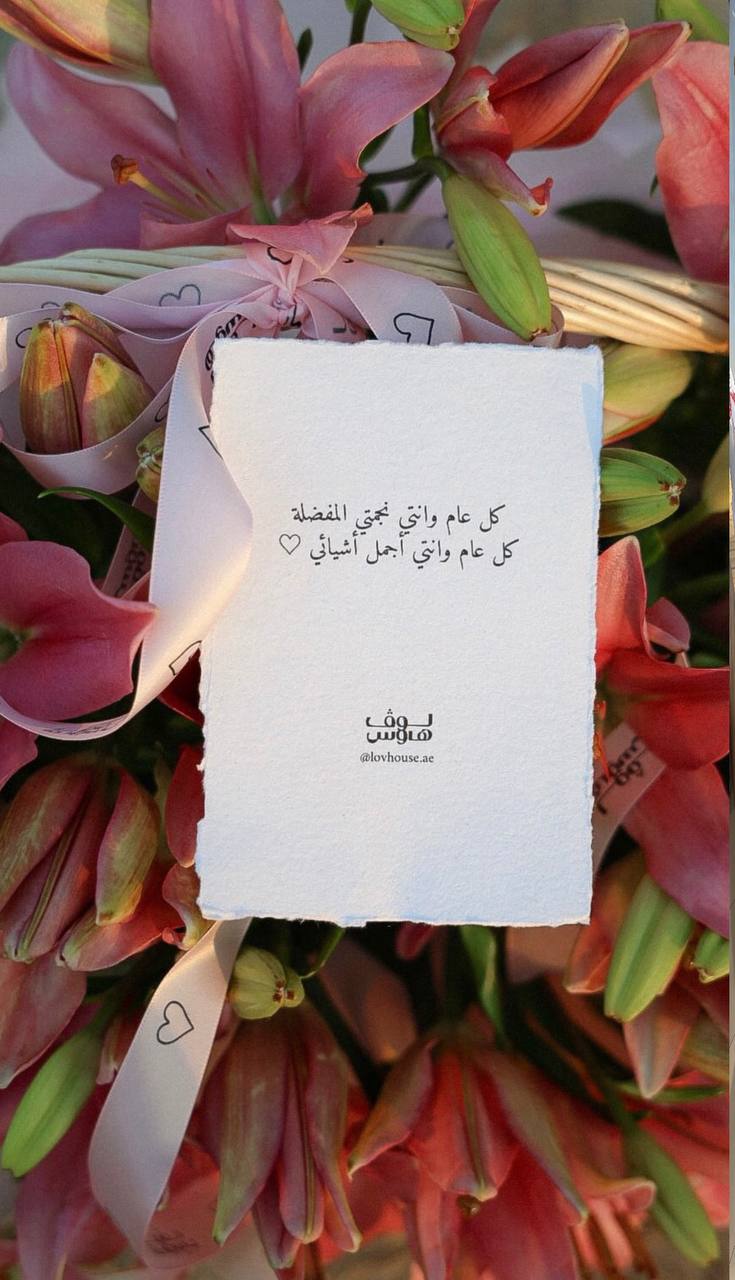 كل عام وانتي نجمتي المفضلة
كل عام وانتي أجمل أشيائي ♡
لـوڤ
هاوس
@lovhouse.ae